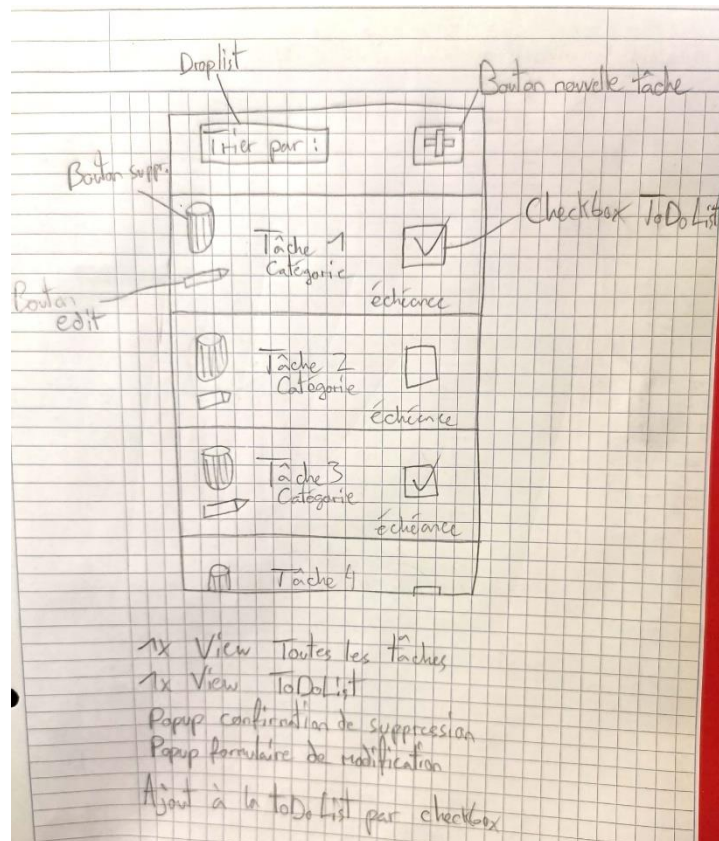 Droplist
Bouton nouvelle tâche
Trier par :
Bouton suppr.
Checkbox ToDoList
Tâche 1
Catégorie
échéance
Bouton
edit
Tâche 2
Catégorie
échéance
Tâche 3
Catégorie
échéance
Tâche 4
1x View Toutes les tâches
1x View ToDoList
Popup confirmation de suppression
Popup formulaire de modification
Ajout à la toDoList par checkbox